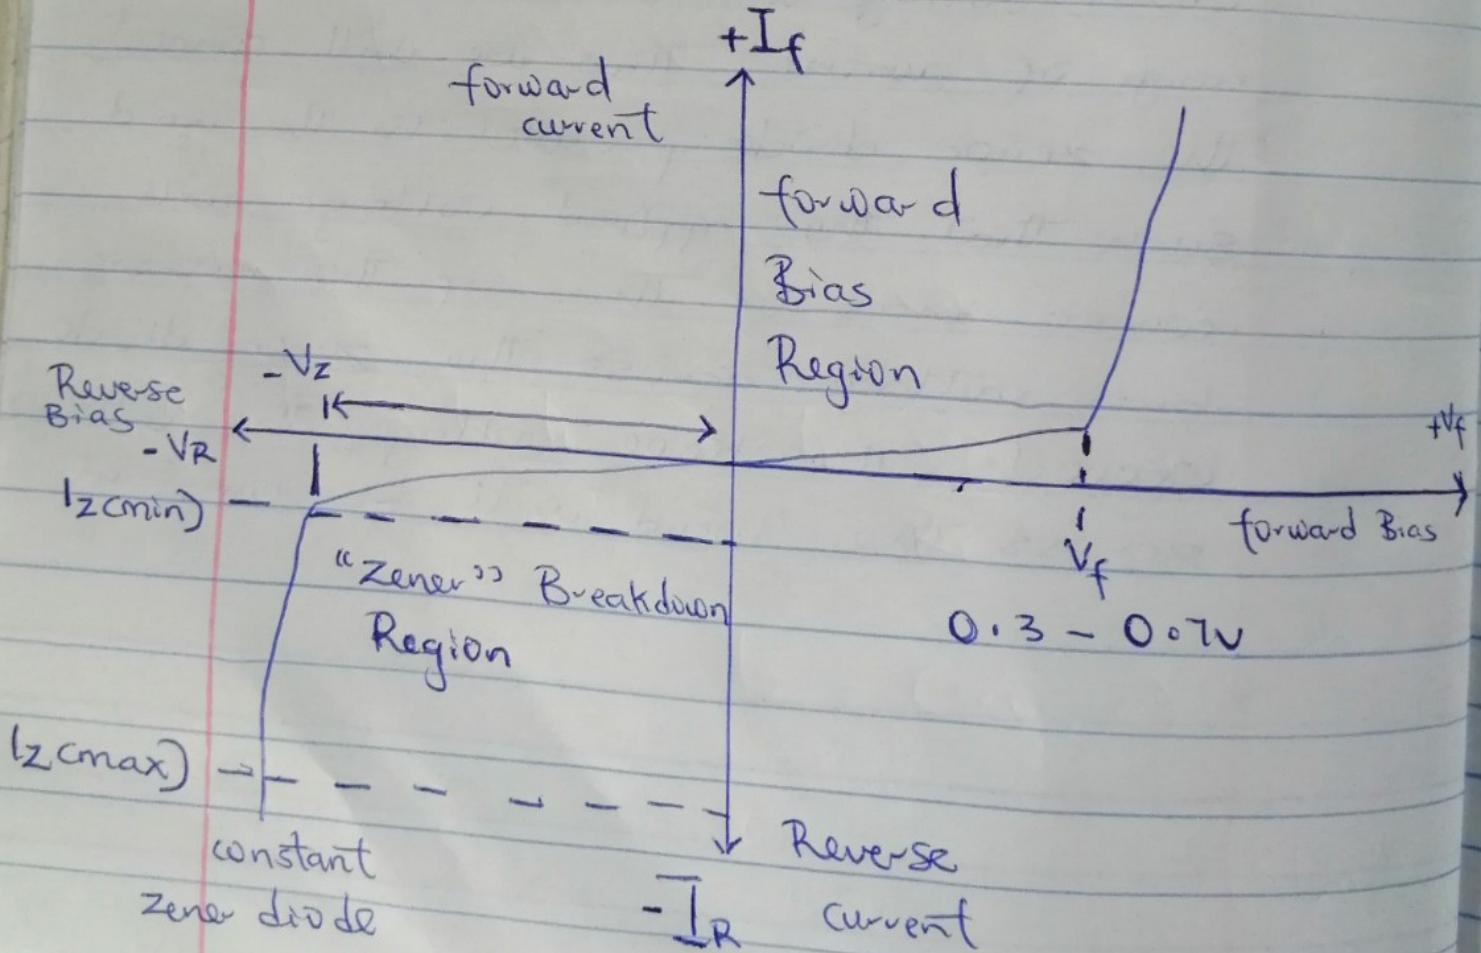 +If
forward
current
forward
Bias
Region
-Vz
Reverse
Bias
-VR
+Vf
Iz(min)
forward Bias
Vf
0.3 - 0.7v
"Zener" Breakdown
Region
Iz(max)
constant
zener diode
Reverse
current
-IR